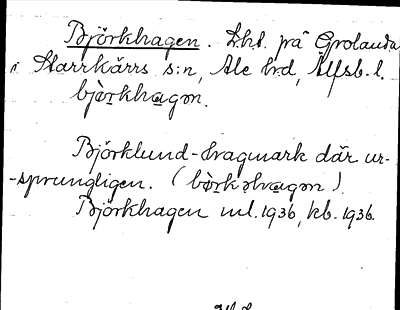 Björkhagen. Lht. på Grolanda
i Starrkärrs s:n, Ale hd, Älfsb. l.
bjò̤rkhagən.
Björklund-hvagmark där ur-
-sprungligen. (
Björkhagen ml. 1936, kb. 1936.